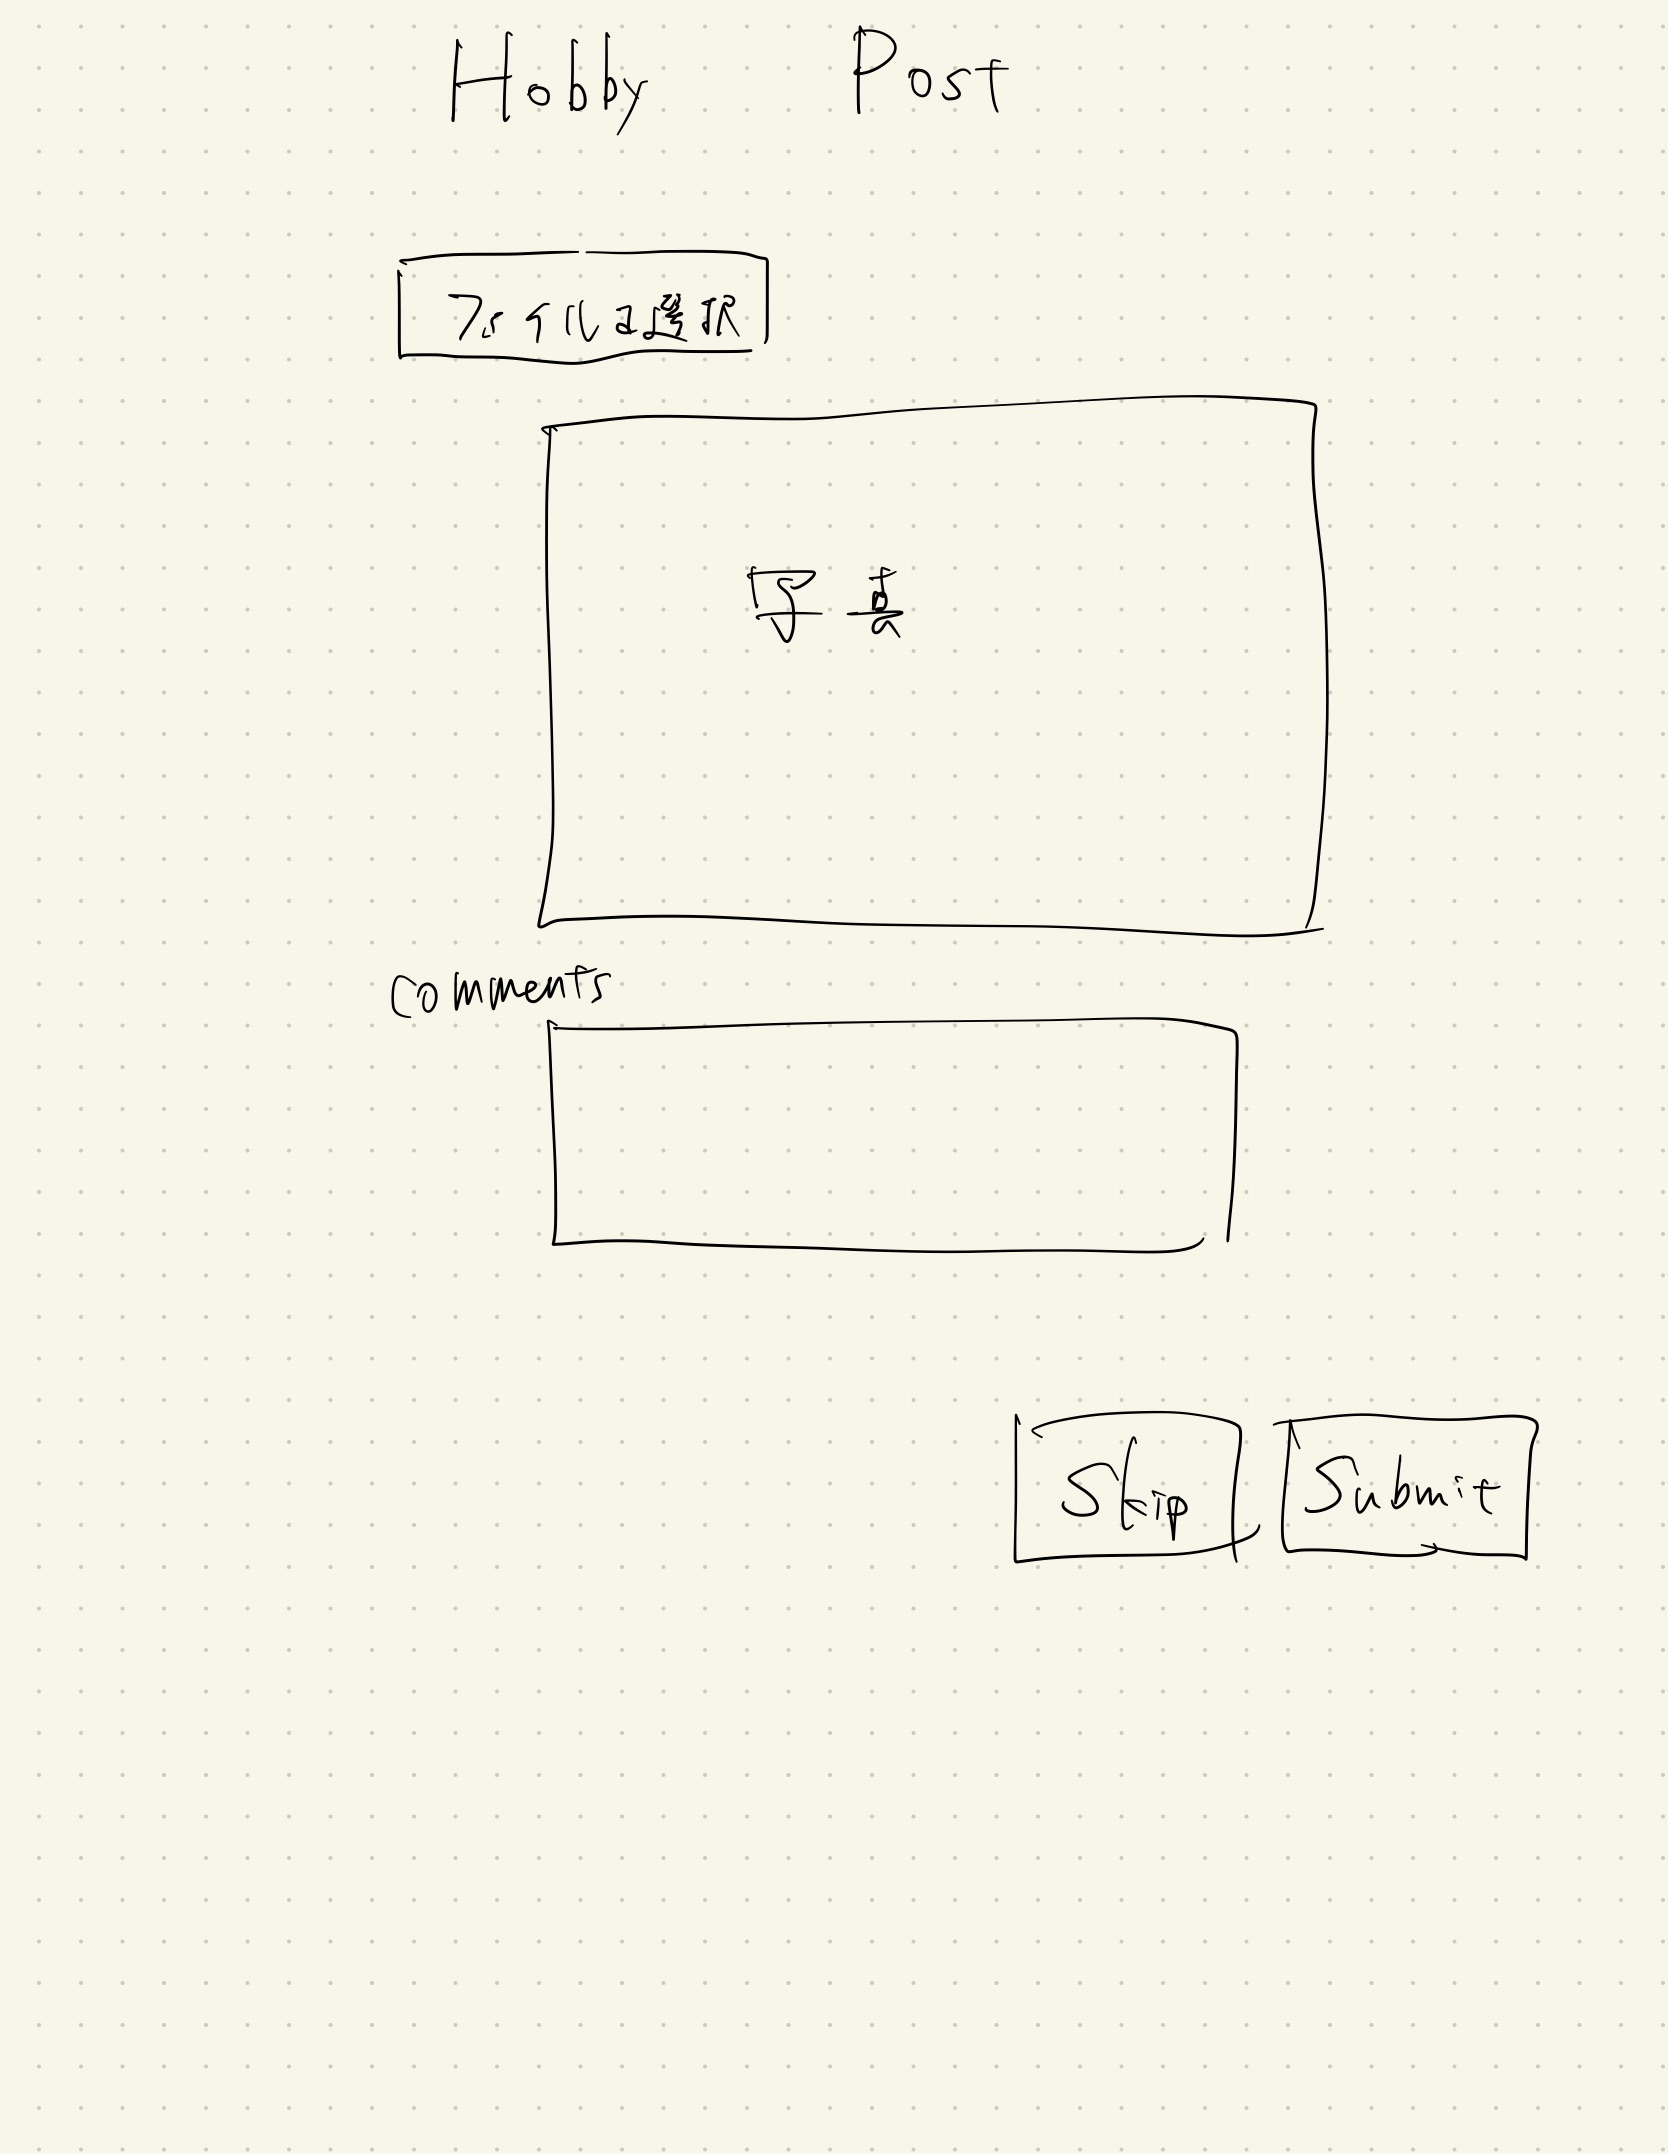 Hobby Post
ファイルを選択
写真
Comments
Skip Submit